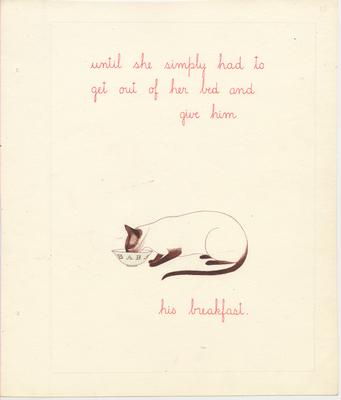 until she simply had to
get out of her bed and
give him
his breakfast.